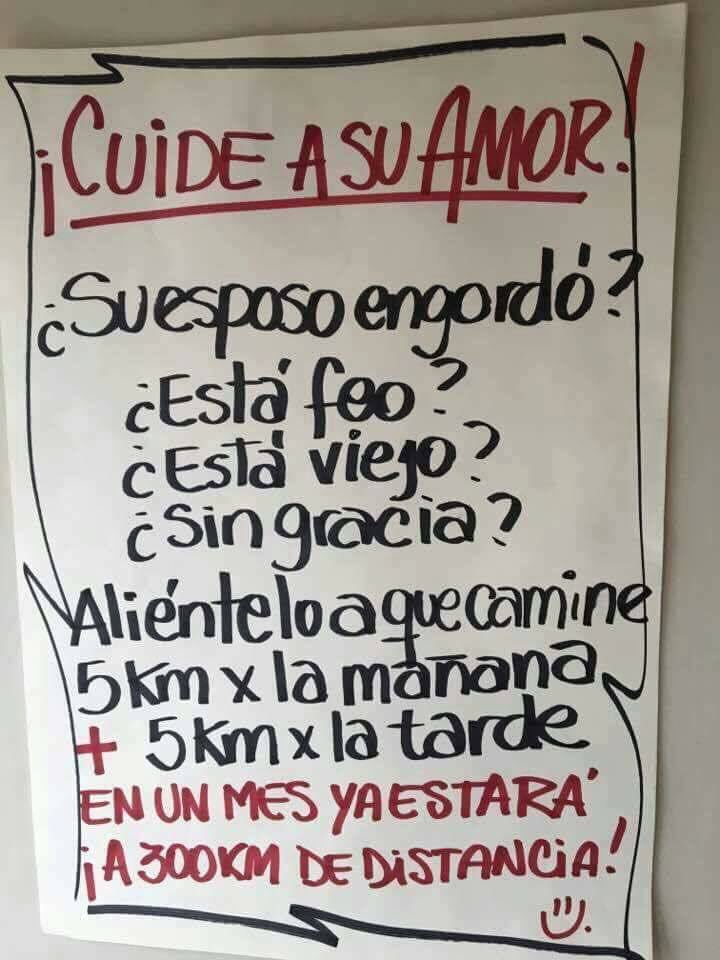 ¡CUIDE A SU AMOR!
¿Su esposo engordó?
¿Está feo?
¿Está viejo?
¿Sin gracia?
Aliéntelo a que camine
5 Km x la mañana
+ 5 Km x la tarde
EN UN MES YA ESTARÁ
¡A 300KM DE DiSTANCiA!